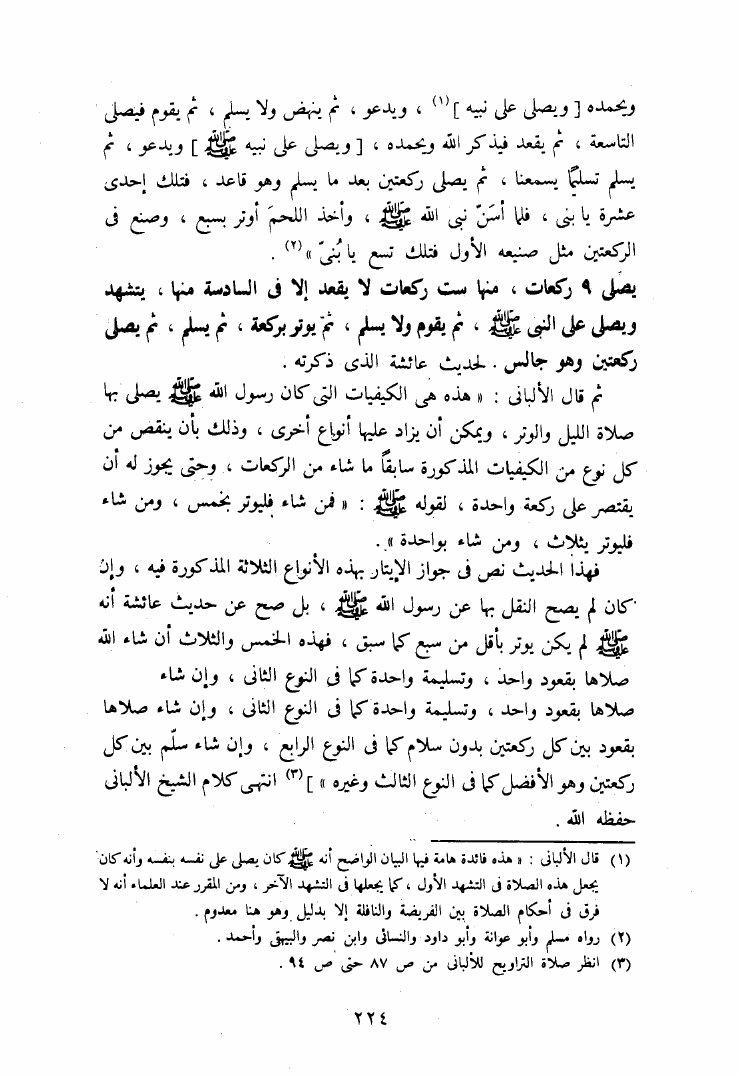 ويحمده [ ويصلى على نبيه ](١) ، ويدعو ، ثم ينهض ولا يسلم ، ثم يقوم فيصلى
التاسعة ، ثم يقعد فيذكر الله ويحمده ، [ ويصلى على نبيه ﷺ ] ويدعو ، ثم
يسلم تسليمًا يسمعنا ، ثم يصلى ركعتين بعد ما يسلم وهو قاعد ، فتلك إحدى
عشرة يا بنى ، فلما أسَنّ نبى الله ﷺ ، وأخذ اللحمَ أوتر بسبع ، وصنع فى
الركعتين مثل صنيعه الأول فتلك تسع يا بُنىّ »(٢) .
يصلى ٩ ركعات ، منها ست ركعات لا يقعد إلا فى السادسة منها ، يتشهد
ويصلى على النبى ﷺ ، ثم يقوم ولا يسلم ، ثم يوتر بركعة ، ثم يسلم ، ثم يصلى
ركعتين وهو جالس . لحديث عائشة الذى ذكرته .
ثم قال الألبانى : « هذه هى الكيفيات التى كان رسول الله ﷺ يصلى بها
صلاة الليل والوتر ، ويمكن أن يزاد عليها أنواع أخرى ، وذلك بأن ينقص من
كل نوع من الكيفيات المذكورة سابقاً ما شاء من الركعات ، وحتى يجوز له أن
يقتصر على ركعة واحدة ، لقوله ﷺ : « فمن شاء فليوتر بخمس ، ومن شاء
فليوتر بثلاث ، ومن شاء بواحدة » .
فهذا الحديث نص فى جواز الإيتار بهذه الأنواع الثلاثة المذكورة فيه ، وإن
كان لم يصح النقل بها عن رسول الله ﷺ ، بل صح عن حديث عائشة أنه
ﷺ لم يكن يوتر بأقل من سبع كما سبق ، فهذه الخمس والثلاث أن شاء الله
صلاها بقعود واحد ، وتسليمة واحدة كما فى النوع الثانى ، وإن شاء
صلاها بقعود واحد ، وتسليمة واحدة كما فى النوع الثانى ، وإن شاء صلاها
بقعود بين كل ركعتين بدون سلام كما فى النوع الرابع ، وإن شاء سلّم بين كل
ركعتين وهو الأفضل كما فى النوع الثالث وغيره » ](٣) انتهى كلام الشيخ الألبانى
حفظه الله .
(١) قال الألبانى : « هذه فائدة هامة فيها البيان الواضح أنه ﷺ كان يصلى على نفسه بنفسه وأنه كان
يجعل هذه الصلاة فى التشهد الأول ، كما يجعلها فى التشهد الآخر ، ومن المقرر عند العلماء أنه لا
فرق فى أحكام الصلاة بين الفريضة والنافلة إلا بدليل وهو هنا معدوم .
(٢) رواه مسلم وأبو عوانة وأبو داود والنسائى وابن نصر والبيهقى وأحمد .
(٣) انظر صلاة التراويح للألبانى من ص ٨٧ حتى ص ٩٤ .
٢٢٤